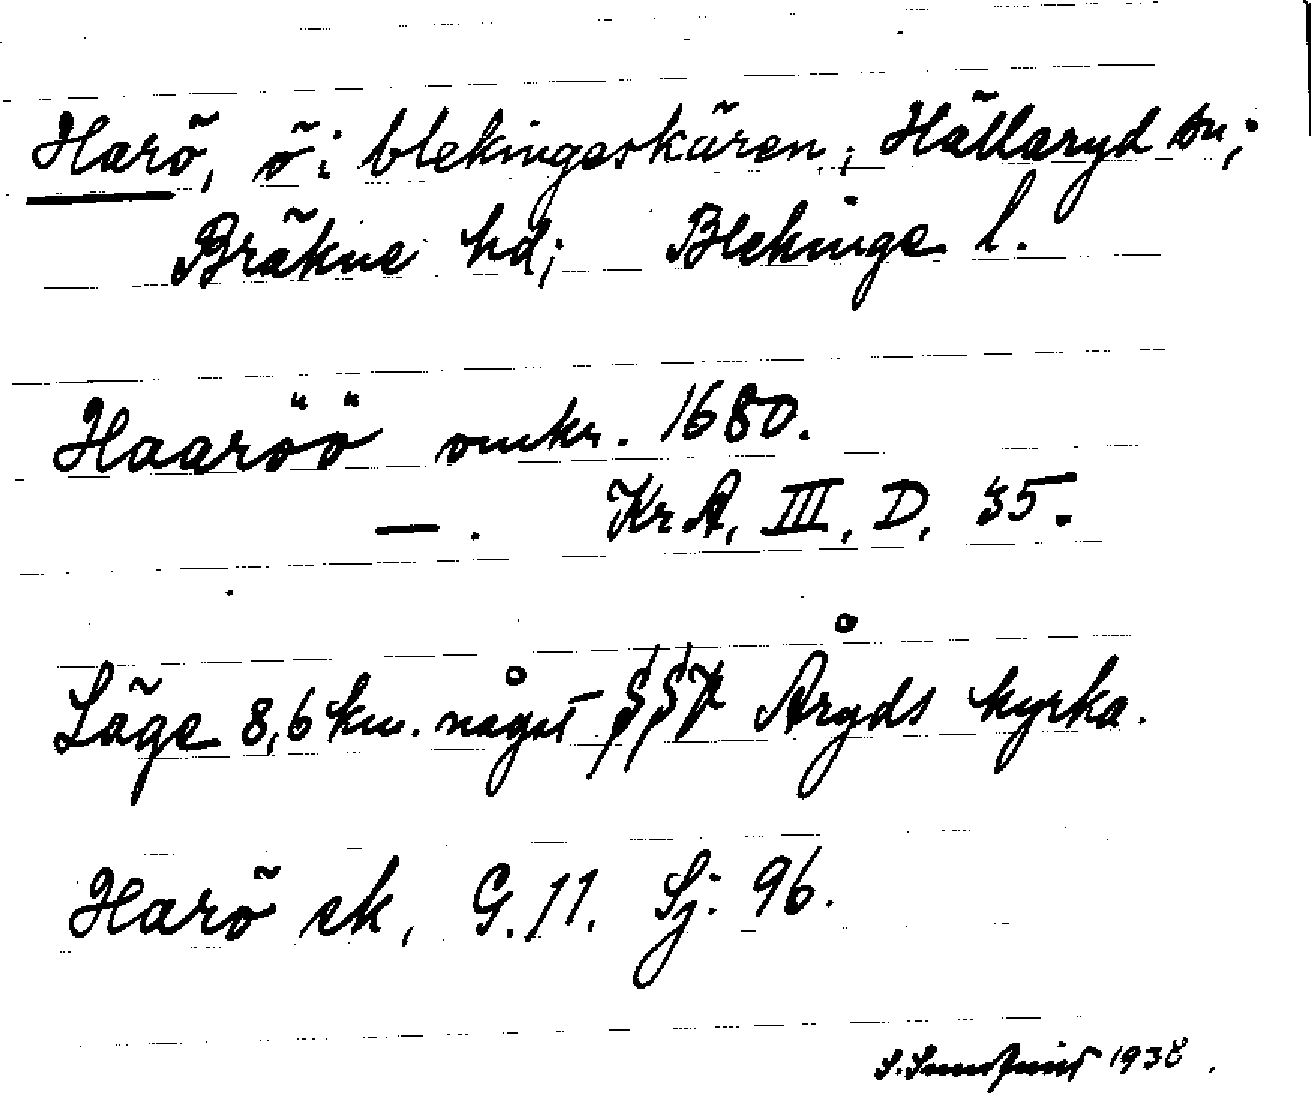 Harö, ö i blekingeskären; Hällaryd sn;
Bräkne hd; Blekinge l.
Haaröö omkr. 1680.
—. KrA, III, D, 35.
Läge 8,6 km. något SSV Åryds kyrka.
Harö ek, G. 11. Sj: 96.
S. 1938.